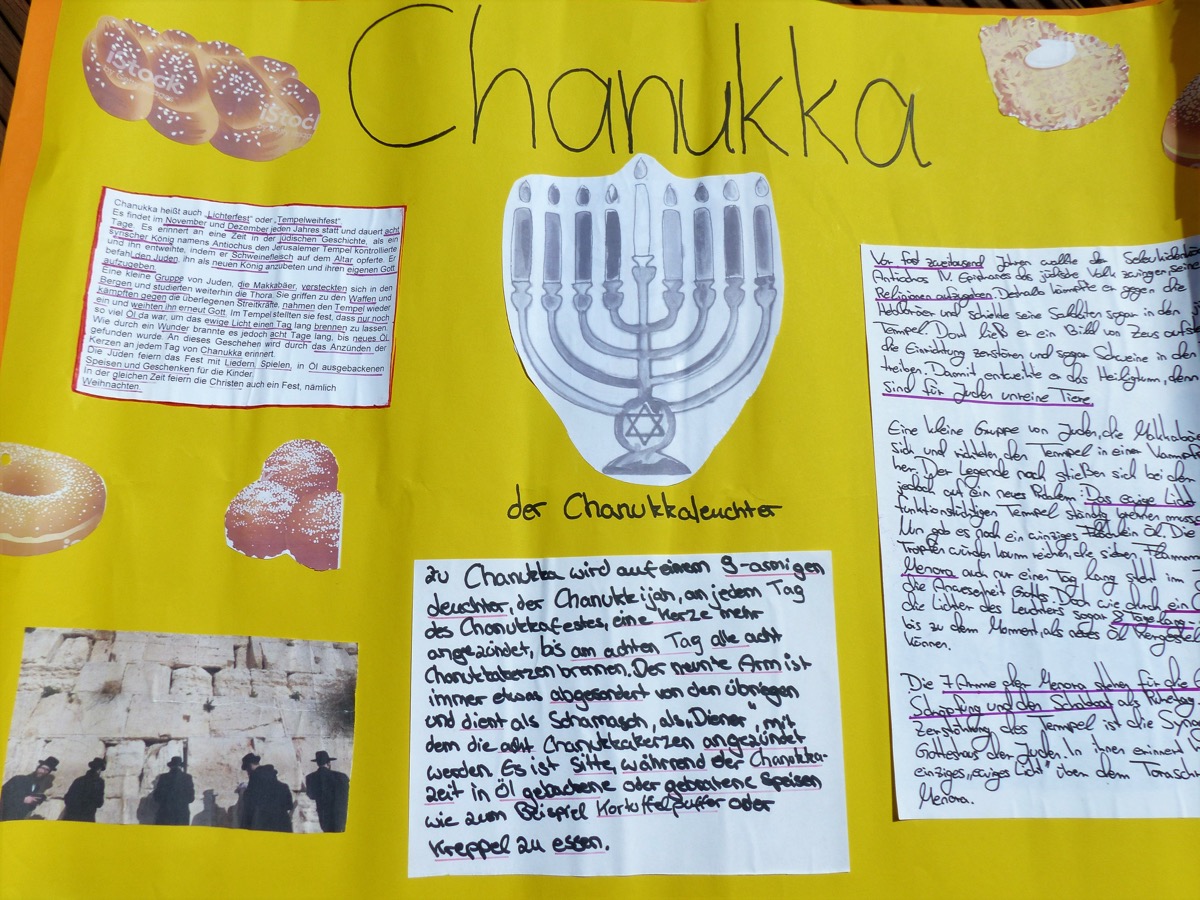 Chanukka
iStock
iStoc
Chanukka heißt auch „Lichterfest“ oder „Tempelweihfest“.
Es findet im November und Dezember jeden Jahres statt und dauert acht
Tage. Es erinnert an eine Zeit in der jüdischen Geschichte, als ein
syrischer König namens Antiochus den Jerusalemer Tempel kontrollierte
und ihn entweihte, indem er Schweinefleisch auf dem Altar opferte. Er
befahl den Juden, ihn als neuen König anzubeten und ihren eigenen Gott
aufzugeben.
Eine kleine Gruppe von Juden, die Makkabäer, versteckten sich in den
Bergen und studierten weiterhin die Thora. Sie griffen zu den Waffen und
kämpften gegen die überlegenen Streitkräfte, nahmen den Tempel wieder
ein und weihten ihn erneut Gott. Im Tempel stellten sie fest, dass nur noch
so viel Öl da war, um das ewige Licht einen Tag lang brennen zu lassen.
Wie durch ein Wunder brannte es jedoch acht Tage lang, bis neues Öl
gefunden wurde. An dieses Geschehen wird durch das Anzünden der
Kerzen an jedem Tag von Chanukka erinnert.
Die Juden feiern das Fest mit Liedern, Spielen, in Öl ausgebackenen
Speisen und Geschenken für die Kinder.
In der gleichen Zeit feiern die Christen auch ein Fest, nämlich
Weihnachten.
der Chanukkaleuchter
zu Chanukka wird auf einem 9-armigen
Leuchter, der Chanukkijah, an jedem Tag
des Chanukkafestes, eine Kerze mehr
angezündet, bis am achten Tag alle acht
Chanukkakerzen brennen. Der neunte Arm ist
immer etwas abgesondert von den übriegen
und dient als Schamasch, als „Diener“, mit
dem die acht Chanukkakerzen angezündet
werden. Es ist Sitte, während der Chanukka-
zeit in Öl gebackene oder gebratene Speisen
wie zum Beispiel Kartoffelpuffer oder
Kreppel zu essen.
Vor fast zweitausend Jahren wollte der
Antiochos IV Epiphanes das jüdische Volk zwingen, seine
Religionen aufzugeben. Deshalb kämpfte er gegen die
und schickte seine Soldaten sogar in den
Tempel. Dort ließ er ein Bild von Zeus
die Einrichtung zerstören und sogar Schweine in den
treiben. Damit entweihte er das Heiligtum, denn
sind für Juden unreine Tiere.
Eine kleine Gruppe von Juden, die
sich und den Tempel in einer
her. Der Legende nach stießen sich bei den
jedoch auf ein neues Problem: Das ewige Licht
funktionstüchtigen Tempel ständig brennen
Nun gab es noch ein winziges Öl. Die
Tropfen würden kaum reichen, die sieben
Menora auch nur einen Tag lang
die Anwesenheit Gotts. Doch wie durch ein
die Lichter des Leuchters sogar 8 Tage lang
bis zu dem Moment, als neues Öl
können.
Die 7 Arme der Menora stehen für die
Schöpfung und den Schabbat als
Zerstörung des Tempel ist die
Gotteshaus der Juden. In ihnen erinnert
einziges „ewiges Licht“ über dem
Menora.